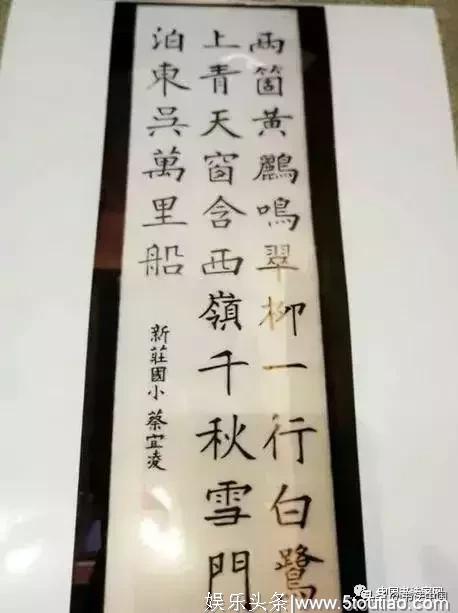 两箇黃鸝鳴翠柳一行白鷺
上青天窗含西嶺千秋雪門
泊東吳萬里船
新莊國小 蔡宜凌
娱乐头条|www.5toutiao.com